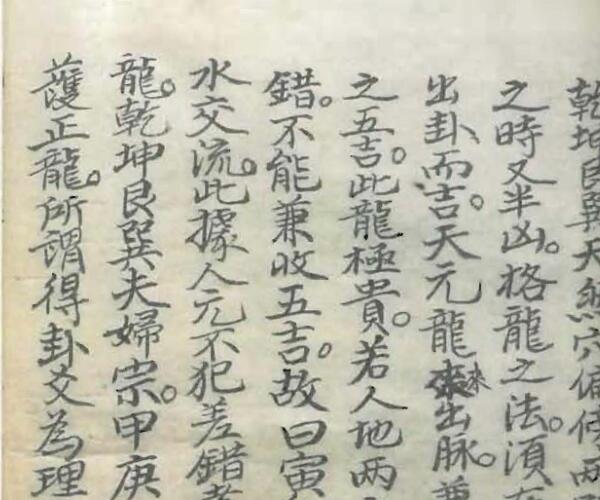 乾坤艮巽天然穴偏傍兩
之時又半凶。格龍之法須
出卦而吉。天元龍來出脉。兼
之五吉。此龍極貴。若人地兩
錯。不能兼收五吉。故曰寅
水交流。此據人元不犯差錯者
龍。乾坤艮巽夫婦宗。甲庚
護正龍。所謂得卦爻為理